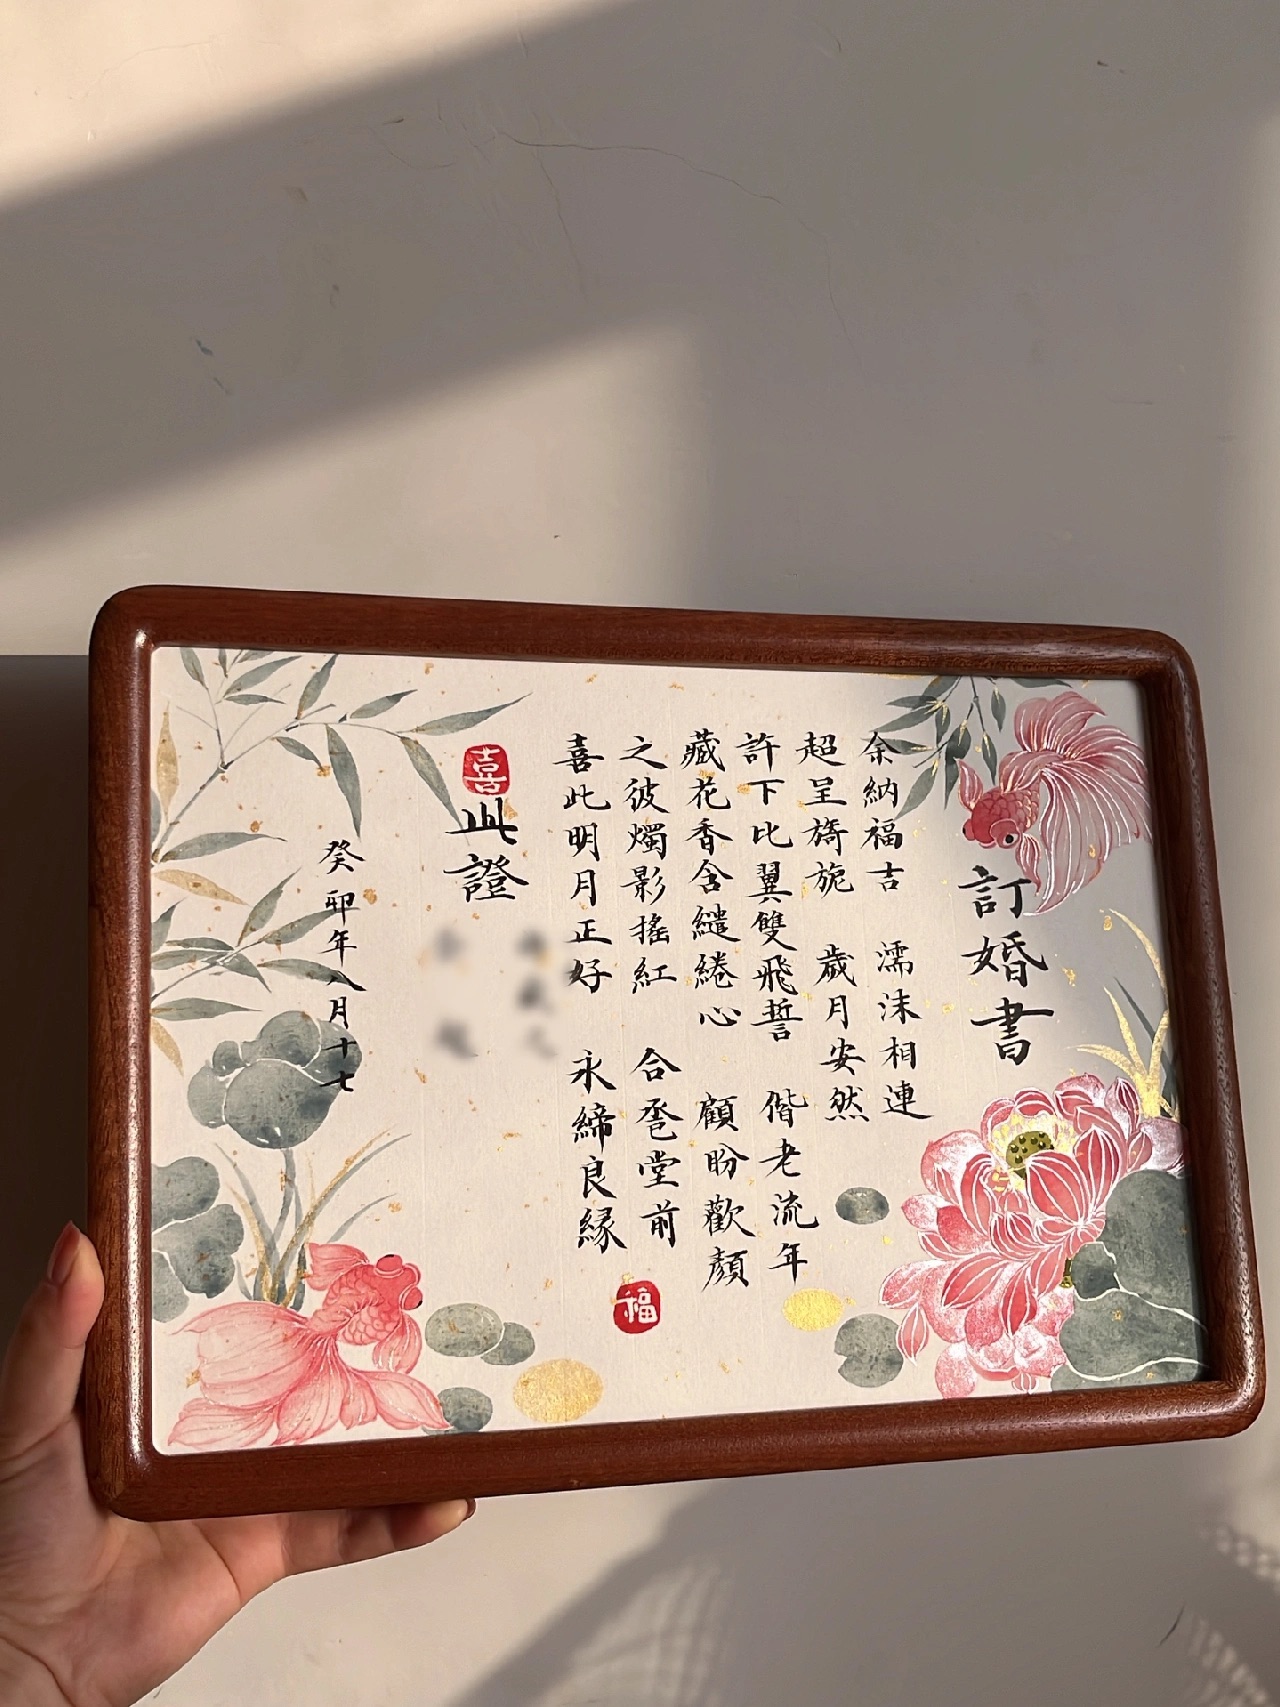 訂婚書
余納福吉 濡沫相連
超呈旖旎 歲月安然
許下比翼雙飛誓 偕老流年
藏花香含繾綣心 顧盼歡顏
之彼燭影搖紅 合卺堂前
喜此明月正好 永締良緣
福
囍
此證
癸卯年八月十七